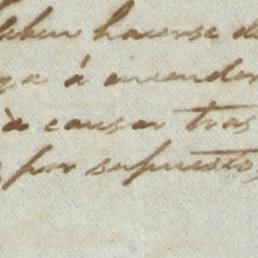 deben hacerse d
ga á encender
à causar tras
por supuesto,